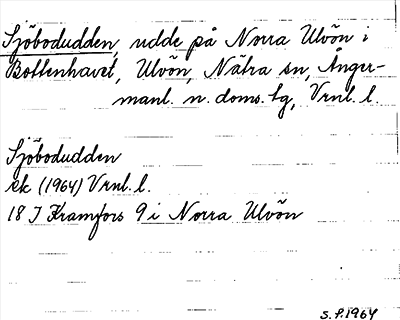 Sjöbodudden, udde på Norra Ulvön i
Bottenhavet, Ulvön, Nätra sn, Ånger-
manl. n. doms. tg, Vrnl. l.
Sjöbodudden
ek (1964) Vrnl. l.
18 J Kramfors 9 i Norra Ulvön
S. P. 1964